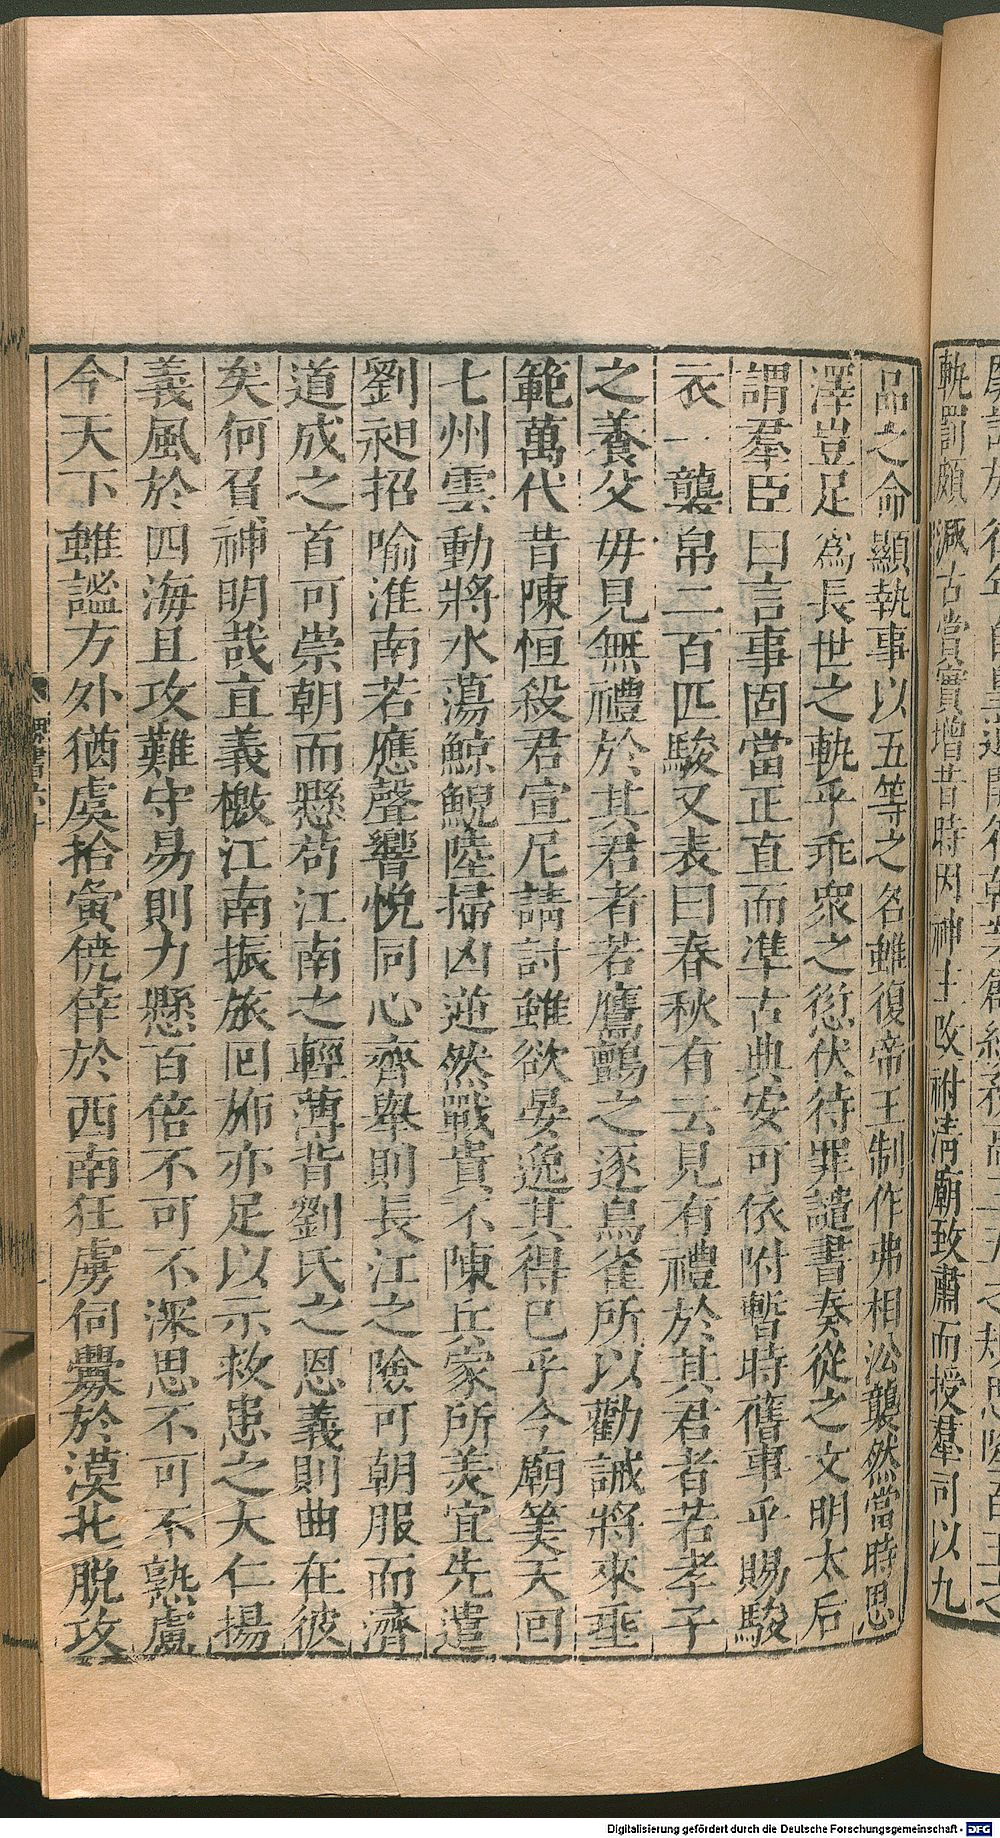 軌罰頗減古賞實增昔時因神主改祔清廟致肅而授羣司以九
品之命顯執事以五等之名雖復帝王制作弗相沿襲然當時恩
澤豈足爲長世之軌乎乖衆之愆伏待罪譴書奏從之文明太后
謂羣臣曰言事固當正直而準古典安可依附暫時舊事乎賜駿
衣一襲帛二百匹駿又表曰春秋有云見有禮於其君者若孝子
之養父母見無禮於其君者若鷹鸇之逐鳥雀所以勸誡將來垂
範萬代昔陳恒殺君宣尼請討雖欲晏逸其得已乎今廟筭天回
七州雲動將水蕩鯨鯢陸掃凶逆然戰貴不陳兵家所美宜先遣
劉昶招喻淮南若應聲響悅同心齊舉則長江之險可朝服而濟
道成之首可崇朝而懸苟江南之輕薄背劉氏之恩義則曲在彼
矣何負神明哉宜義檄江南振旅回旆亦足以示救患之大仁揚
義風於四海且攻難守易則力懸百倍不可不深思不可不熟慮
今天下雖謐方外猶虞拾夤僥倖於西南狂虜伺釁於漠北脫攻
Digitalisierung gefördert durch die Deutsche Forschungsgemeinschaft - DFG